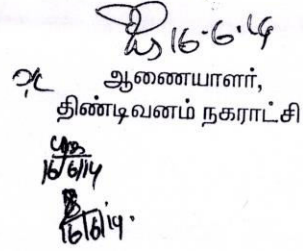 16.6.14
ஆணையாளர்,
திண்டிவனம் நகராட்சி
16/6/14
16/6/14.